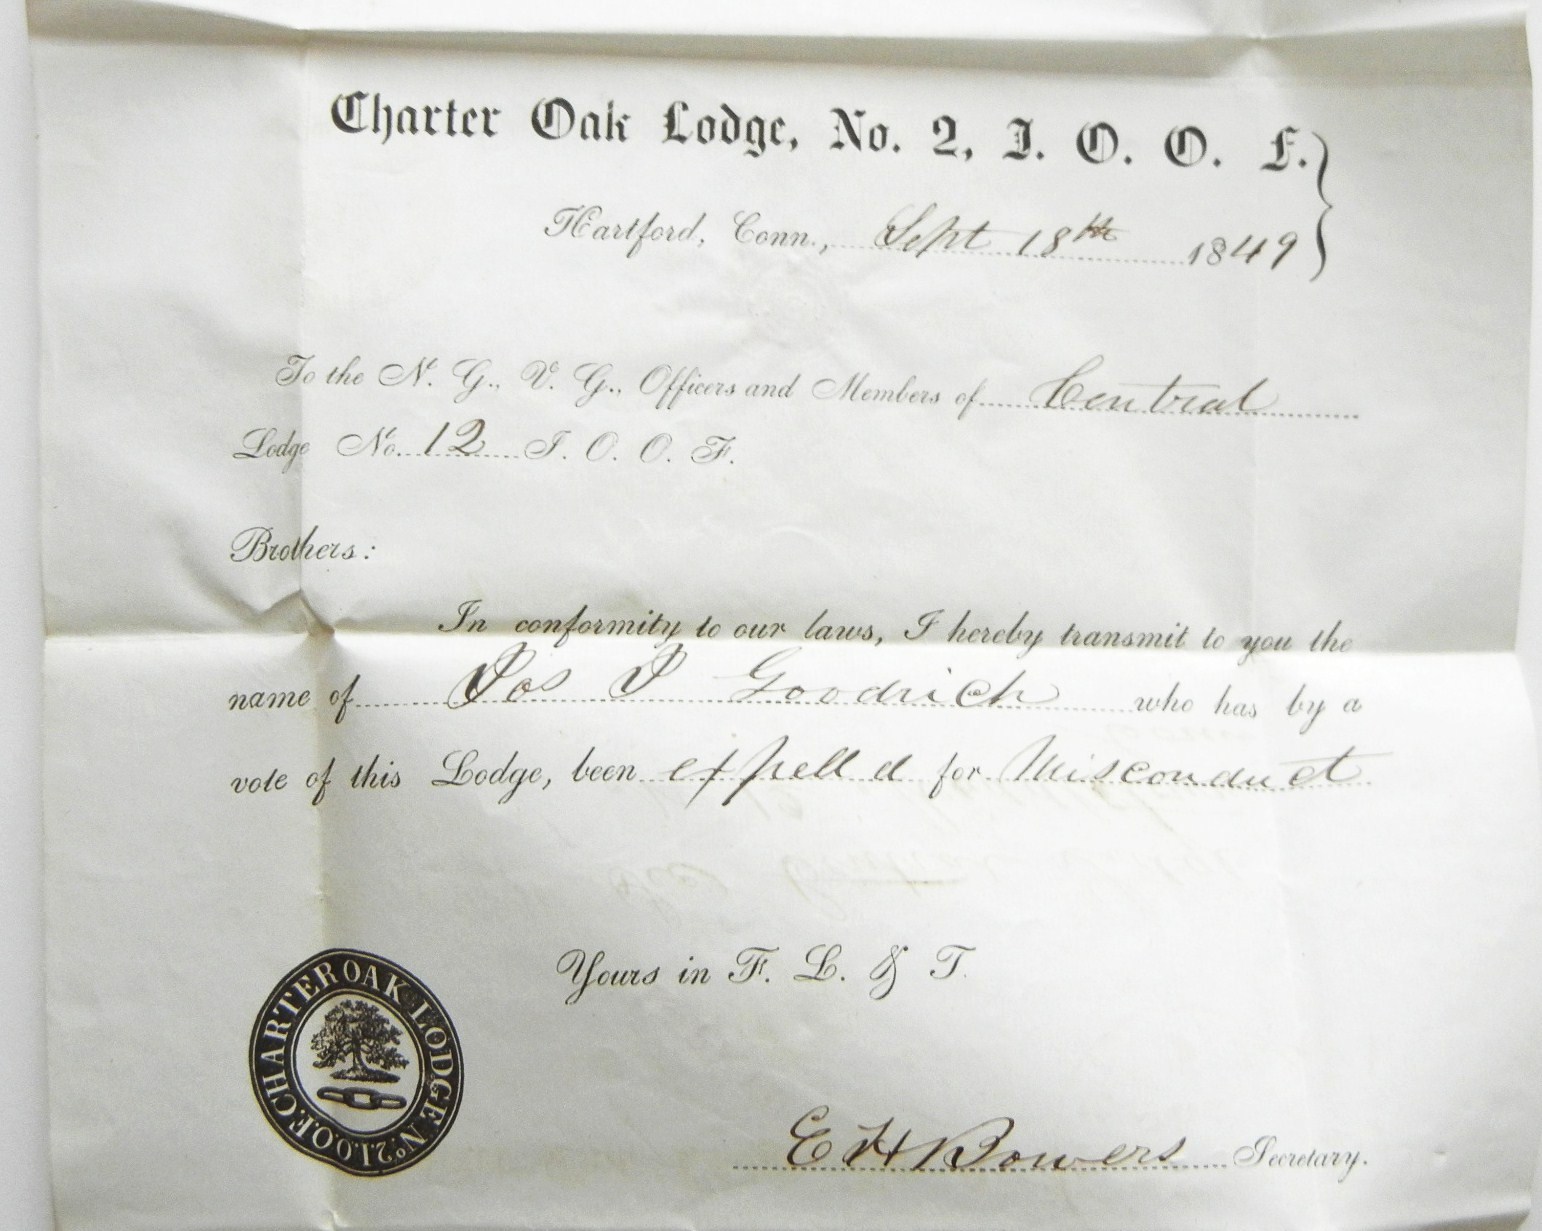 Charter Oak Lodge, No. 2, I. O. O. F.
Hartford, Conn., Sept 18th 1849
To the N. G., V. G., Officers and Members of Central
Lodge No. 12 I. O. O. F.
Brothers:
In conformity to our laws, I hereby transmit to you the
name of Jos J Goodrich who has by a
vote of this Lodge, been expelld for Misconduct
Yours in F. L. & T.
CHARTER OAK LODGE No 2 I.O.O.F.
E H Bowers Secretary.